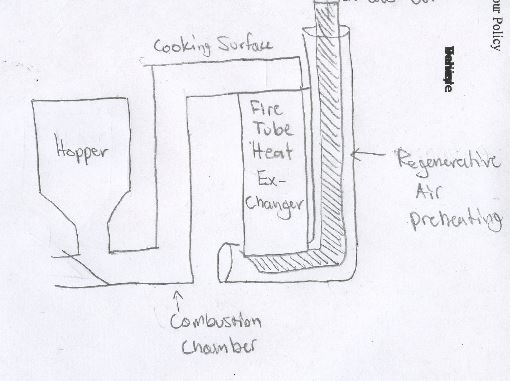 our Policy
Cooking Surface
Hopper
Fire
Tube
Heat
Ex-
Changer
Regenerative
Air
Preheating
Combustion
Chamber